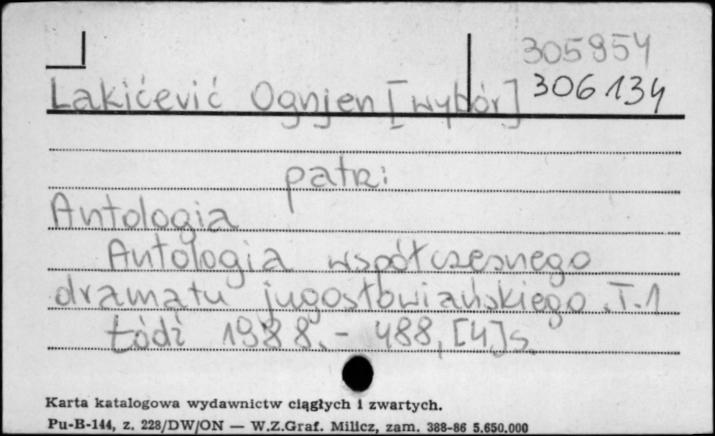 305954
Lakićević Ognjen [wybór] 306134
patrz:
Antologia
Antologia współczesnego
dramatu jugosłowiańskiego. T.1
Łódź 1988. - 488, [4] s.
Karta katalogowa wydawnictw ciągłych i zwartych.
Pu-B-144, z. 228/DW/ON — W.Z.Graf. Milicz, zam. 388-86 5.650.000